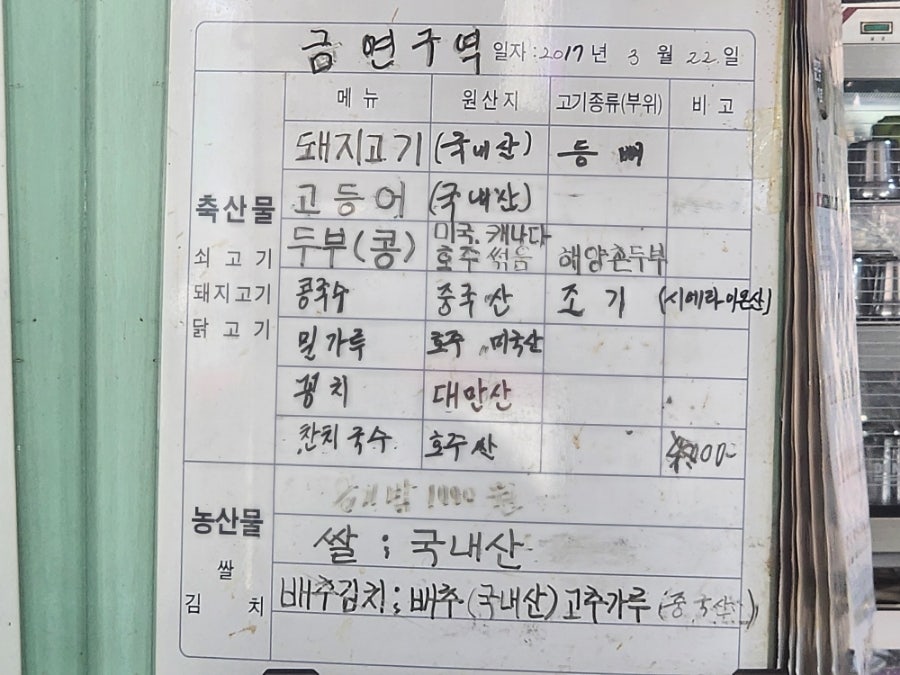 금연구역 일자 : 2017 년 3 월 22 일
메 뉴 원 산 지 고기종류(부위) 비 고
돼지고기 (국내산) 등 뼈
축산물 고 등 어 (국내산)
쇠 고 기 두부(콩) 미국. 캐나다 호주 섞음 해양촌두부
돼지고기 콩국수 중국산 조 기 (시에라리온산)
닭 고 기 밀가루 호주, 미국산
꽁 치 대만산
잔치국수 호주산
농산물 1000 원
쌀 쌀 ; 국내산
김 치 배추김치 ; 배추 (국내산) 고추가루 (중국산)